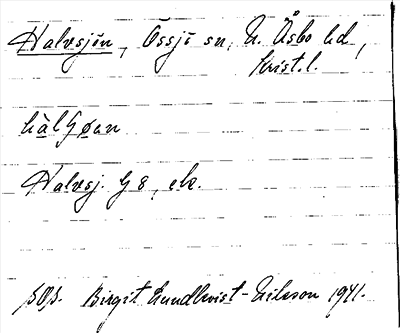 Halvsjön, Össjö sn, N. Åsbo hd,
Krist. l.
Halvsj. G 8, ek.
Birgit Lundkvist-Nilsson 1941.